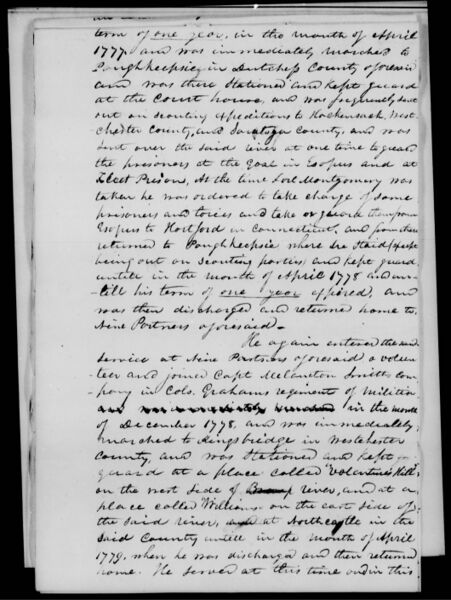 term of one year, in the month of April
1777. and was immediately marched to
Poughkeepsie in Dutchess County aforesaid
and was there Stationed and kept guard
at the Court house, and was frequently sent
out on scouting expeditions to Hackensack, West-
chester County, and Saratoga County, and was
sent over the said river at one time to guard
the prisoners at the Goal in Esopus and at
Fleet Prison, At the time Fort Montgomery was
taken he was ordered to take charge of some
prisoners and tories and take or guard them from
Esopus to Hartford in Connecticut, and from thence
returned to Poughkeepsie where he staid (except
being out on Scouting parties) and kept guard
untill in the month of April 1778 and un-
-till his term of one year expired, and
was then discharged and returned home to
Nine Partners aforesaid.
He again entered the said
service at Nine Partners aforesaid a volun-
teer and joined Capt Melancton Smiths com-
-pany in Cols. Grahams regiment of Militia
and was immediately marched in the month
of December 1778, and was immediately
marched to Kingsbridge in Westchester
County, and was Stationed and kept
guard at a place called "Volentines Hill"
on the west side of river, and at a
place called Williams on the east side of
the said river, at Northcastle in the
said County untill in the month of April
1779. when he was discharged and then returned
home. He served at this time in this